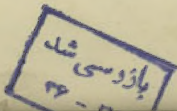 بازرسی شد